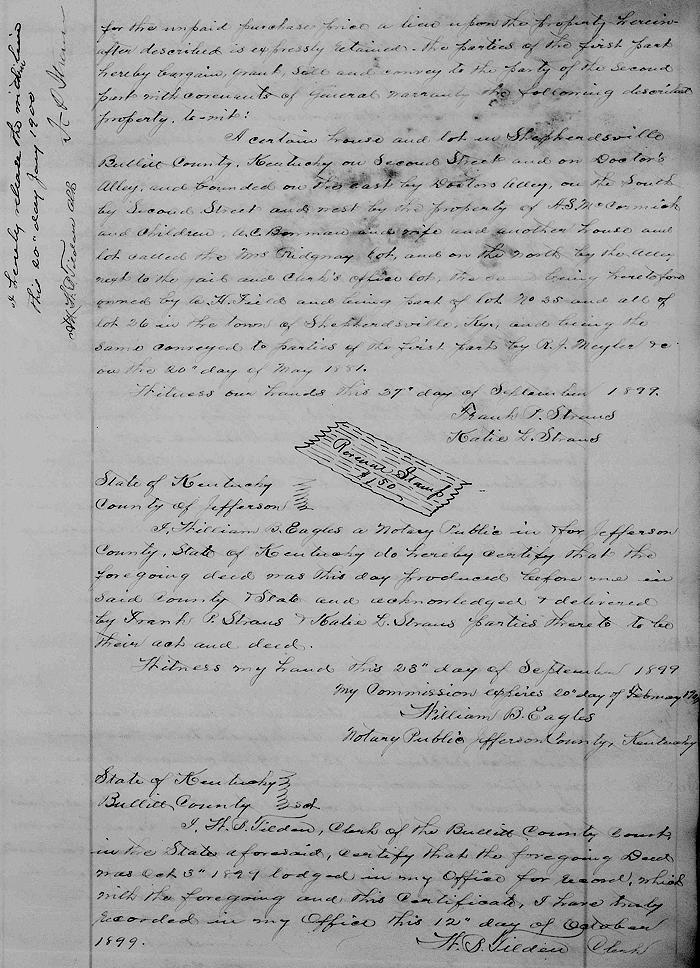 for the unpaid purchase price a lien upon the property herein-
after described is expressly retained. the parties of the first part
hereby bargain, grant, sell and convey to the party of the second
part with covenants of General warranty the following described
property, to-wit:
A certain house and lot in Shepherdsville
Bullitt County, Kentucky on Second Street and on Doctor's
Alley, and bounded on the east by Doctors Alley, on the South
by Second Street and west by the property of A.S. McCormick
and Children, W.C. Bowman and wife and another house and
lot called the Mrs Ridgway lot, and on the north by the Alley
next to the jail and Clerk's office lot, the being heretofore
owned by W.H. Field and being part of lot No 25 and all of
lot 26 in the town of Shepherdsville, Ky, and being the
same conveyed to parties of the first part by R.J. Meyler &c
on the 20" day of May 1881.
Witness our hands this 27" day of September 1899.
Frank P. Straus
Katie L. Straus
Revenue Stamp
$1.50
State of Kentucky
County of Jefferson
I, William B. Eagles a Notary Public in & for Jefferson
County, State of Kentucky do hereby certify that the
foregoing deed was this day produced before me in
said County & State and acknowledged & delivered
by Frank P. Straus & Katie L. Straus parties thereto to be
their act and deed.
Witness my hand this 28" day of September 1899
My Commission expires 20" day of February
William B. Eagles
Notary Public Jefferson County, Kentucky
State of Kentucky
Bullitt County Sct
I, H.S. Tilden, Clerk of the Bullitt County Court
in the State aforesaid, certify that the foregoing Deed
was Oct 3" 1899 lodged in my Office for record, which
with the foregoing and this Certificate, I have truly
recorded in my Office this 12" day of October
1899. H.S. Tilden Clerk
I hereby release the within lien
this 20" day Jany 1900
F. P. Straus
Att H.S. Tilden Clk